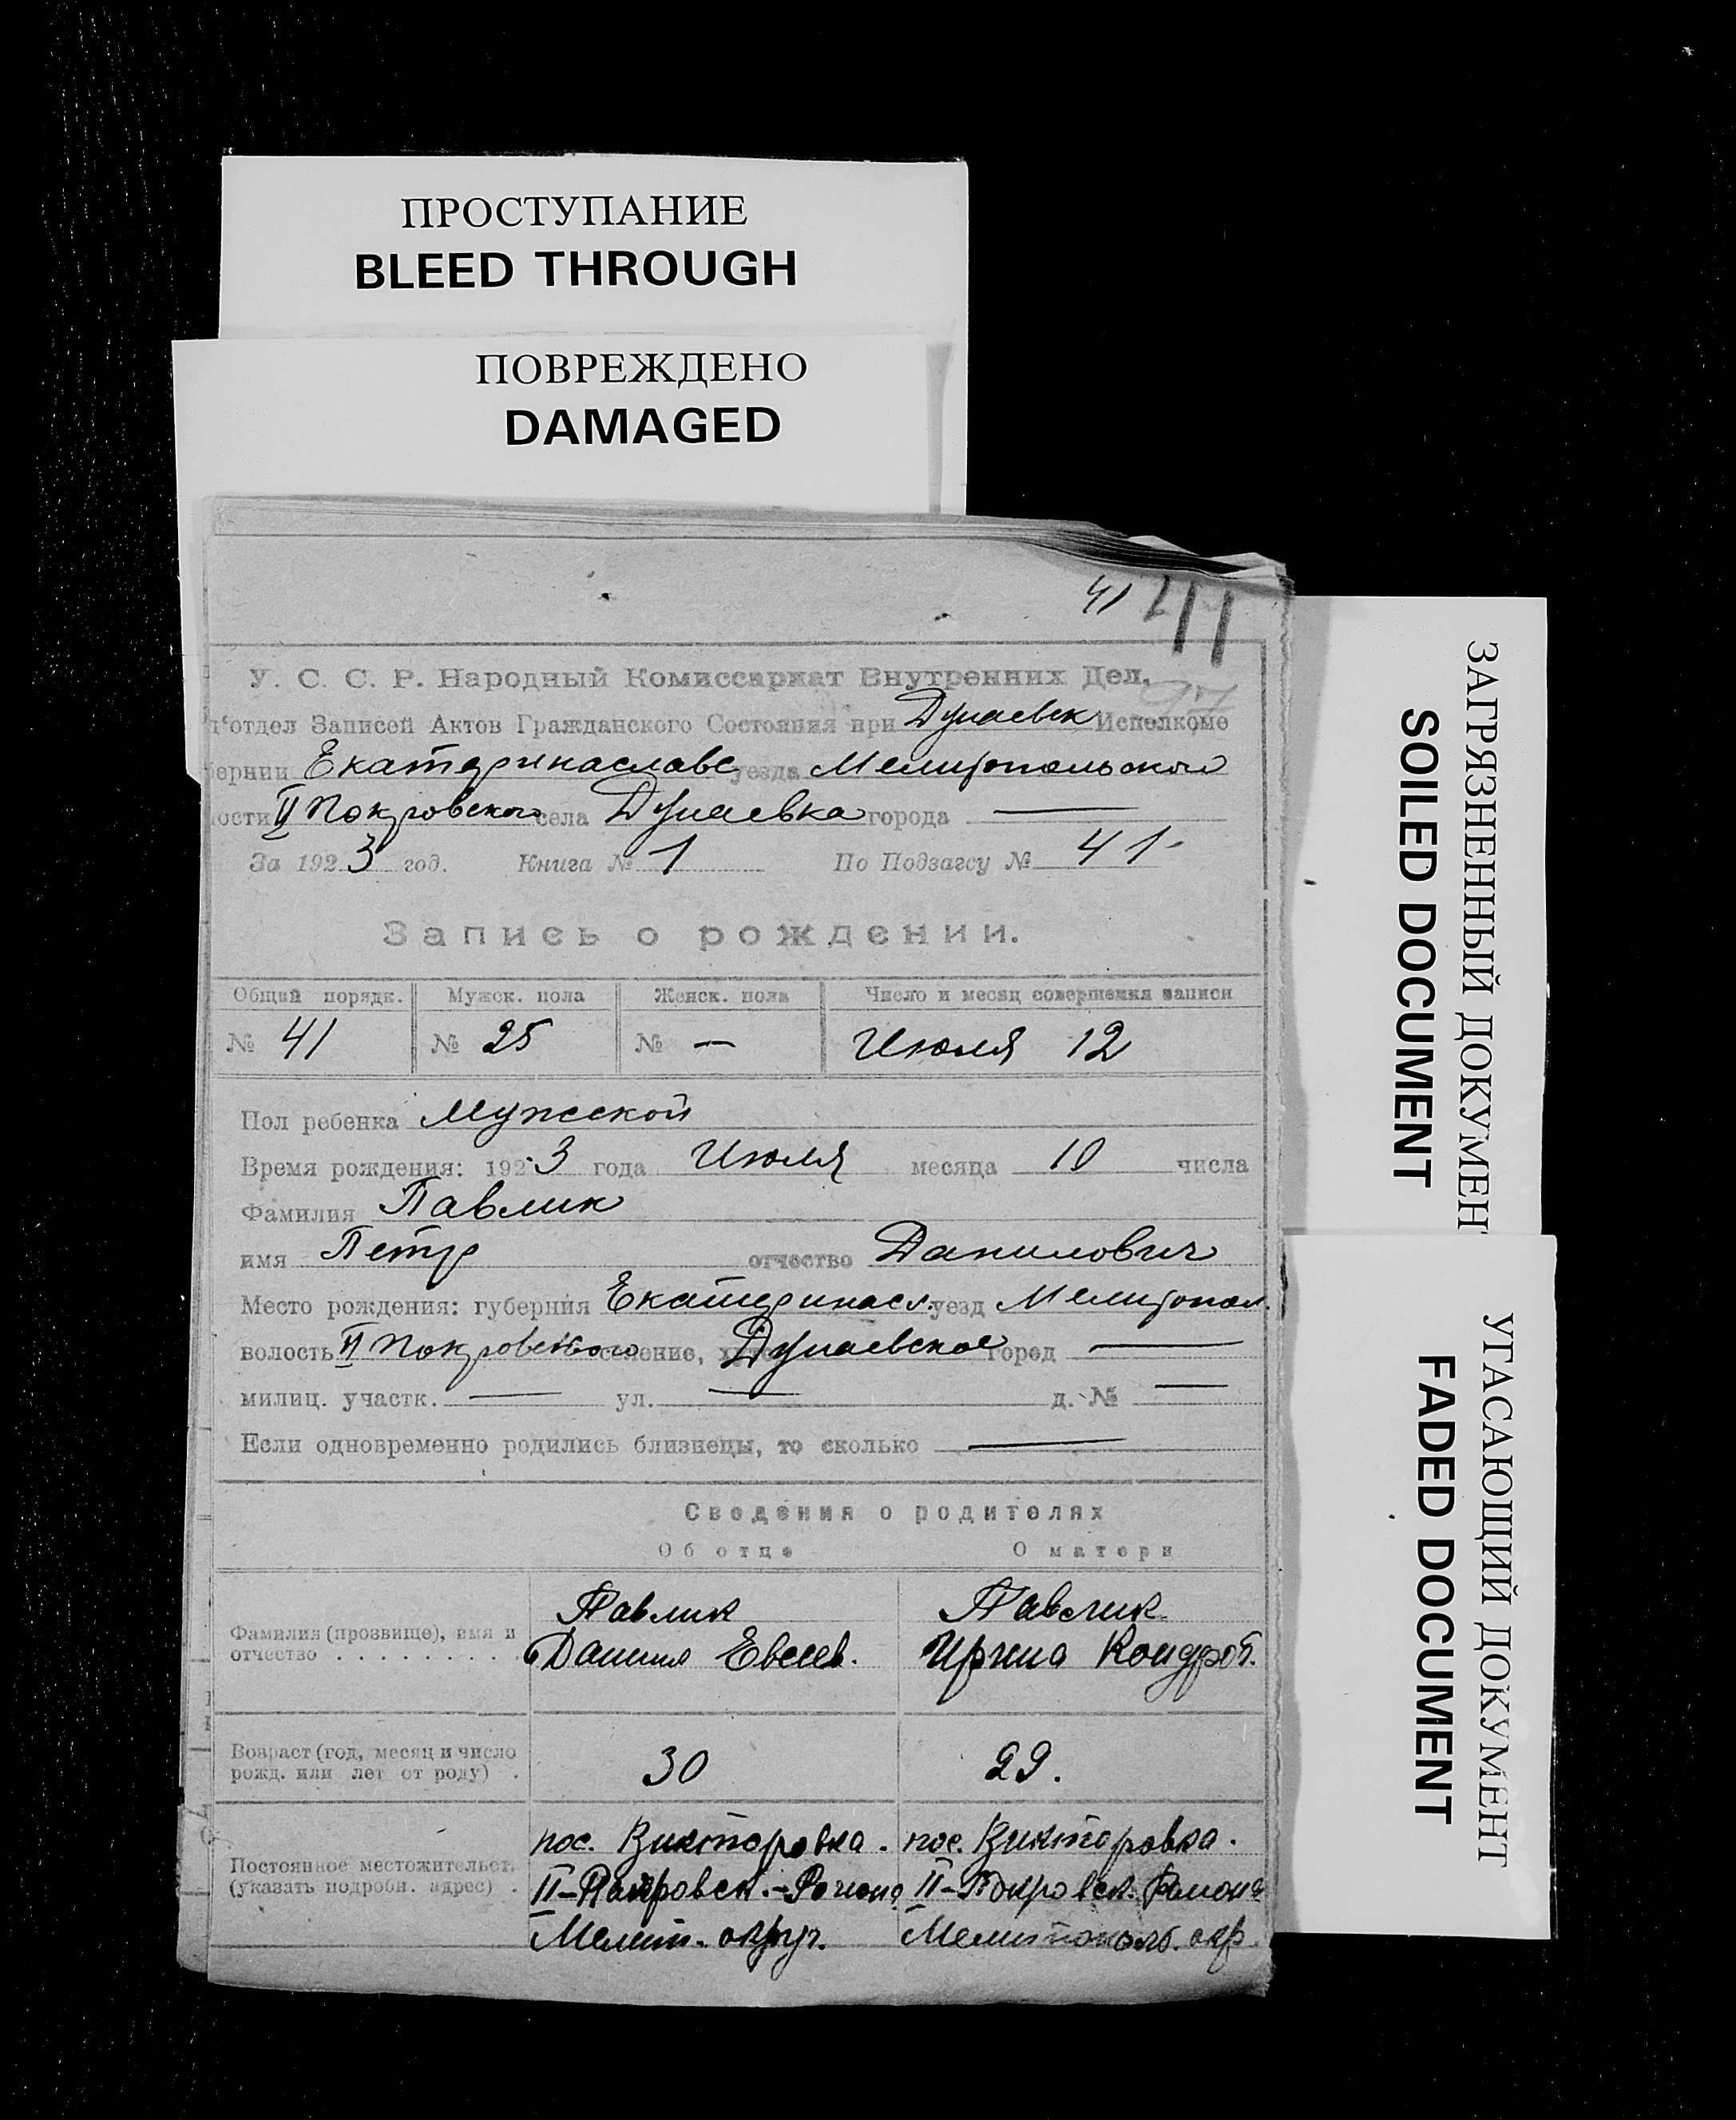 ПРОСТУПАНИЕ
BLEED THROUGH
ПОВРЕЖДЕНО
DAMAGED
41 41
У. С. С. Р. Народный Комиссариат Внутренних Дел.
отдел Записей Актов Гражданского Состояния при Дунаевск Исполкоме
бернии Екатеринославс уезда Мелитопольского
ости II Покровского села Дунаевка города —
За 1923 год. Книга № 1 По Подзагсу № 41
Запись о рождении.
Общий порядк. Мужск. пола Женск. пола Число и месяц совершения записи
№ 41 № 25 № — Июля 12
Пол ребенка Мужской
Время рождения: 1923 года Июля месяца 10 числа
Фамилия Павлик
имя Петр отчество Данилович
Место рождения: губерния Екатеринасл. уезд Мелитопол.
волость II Покровского селение, Дунаевское город —
милиц. участк. — ул. — д. № —
Если одновременно родились близнецы, то сколько —
Сведения о родителях
Об отце О матери
Павлик Павлик
Фамилия (прозвище), имя и
отчество . . . . . . . . . Данил Евсеев. Ирина Кондрат.
Возраст (год, месяц и число
рожд. или лет от роду) . 30 29.
пос. Викторовка. пос. Викторовка.
Постоянное местожительст.
(указать подробн. адрес) . II-Покровск.-Района II-Покровск. Района
Мелит. округ. Мелитополь. окр.
ЗАГРЯЗНЕННЫЙ ДОКУМЕНТ
SOILED DOCUMENT
УГАСАЮЩИЙ ДОКУМЕНТ
FADED DOCUMENT